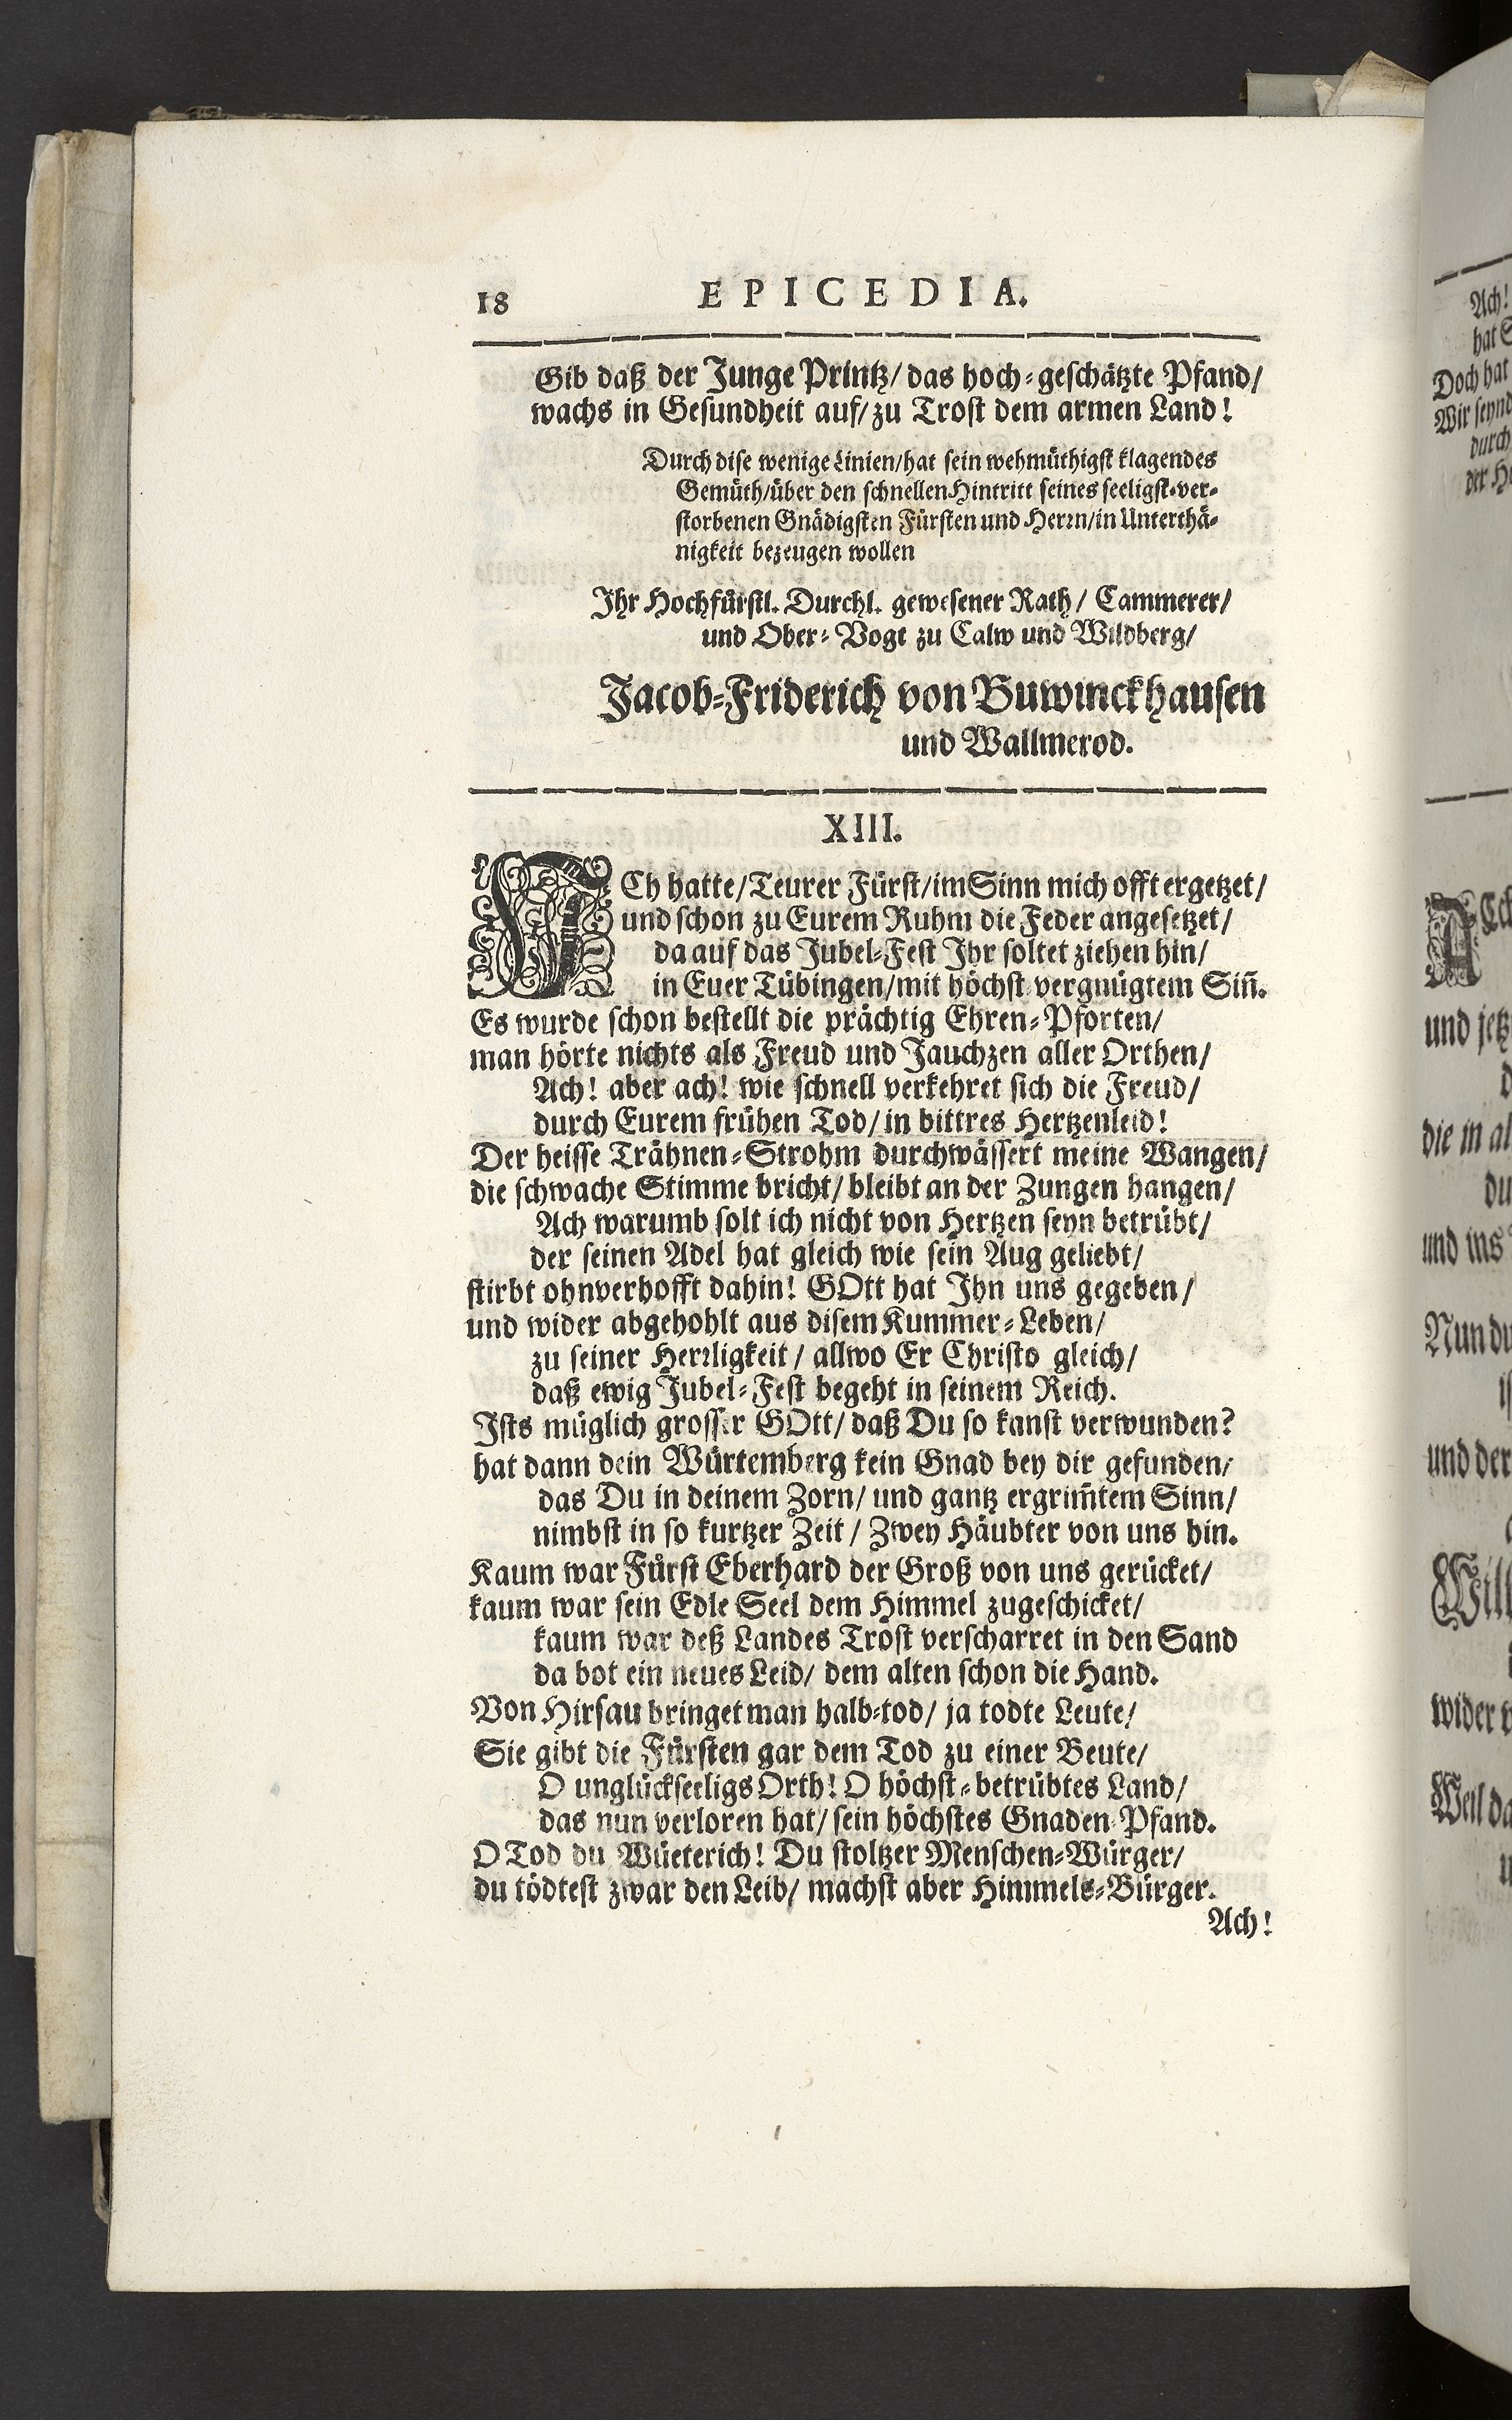 18 EPICEDIA.
Gib daß der Junge Printz/ das hoch-geschätzte Pfand/
wachs in Gesundheit auf/ zu Trost dem armen Land!
Durch dise wenige Linien/ hat sein wehmüthigst klagendes
Gemüth/ über den schnellen Hintritt seines seeligst-ver-
storbenen Gnädigsten Fürsten und Herrn/ in Unterthä-
nigkeit bezeugen wollen
Ihr Hochfürstl. Durchl. gewesener Rath/ Cammerer/
und Ober-Vogt zu Calw und Wildberg/
Jacob-Friderich von Buwinckhausen
und Wallmerod.
XIII.
ICh hatte/ Teurer Fürst/ im Sinn mich offt ergetzet/
und schon zu Eurem Ruhm die Feder angesetzet/
da auf das Jubel-Fest Ihr soltet ziehen hin/
in Euer Tübingen/ mit höchst vergnügtem Sin̄.
Es wurde schon bestellt die prächtig Ehren-Pforten/
man hörte nichts als Freud und Jauchzen aller Orthen/
Ach! aber ach! wie schnell verkehret sich die Freud/
durch Eurem frühen Tod/ in bittres Hertzenleid!
Der heisse Trähnen-Strohm durchwässert meine Wangen/
die schwache Stimme bricht/ bleibt an der Zungen hangen/
Ach warumb solt ich nicht von Hertzen seyn betrübt/
der seinen Adel hat gleich wie sein Aug geliebt/
stirbt ohnverhofft dahin! GOtt hat Ihn uns gegeben/
und wider abgehohlt aus disem Kummer-Leben/
zu seiner Herrligkeit/ allwo Er Christo gleich/
daß ewig Jubel-Fest begeht in seinem Reich.
Ists müglich grosser GOtt/ daß Du so kanst verwunden?
hat dann dein Würtemberg kein Gnad bey dir gefunden/
das Du in deinem Zorn/ und gantz ergrim̄tem Sinn/
nimbst in so kurtzer Zeit/ Zwey Häubter von uns hin.
Kaum war Fürst Eberhard der Groß von uns gerücket/
kaum war sein Edle Seel dem Himmel zugeschicket/
kaum war deß Landes Trost verscharret in den Sand
da bot ein neues Leid/ dem alten schon die Hand.
Von Hirsau bringet man halb-tod/ ja todte Leute/
Sie gibt die Fürsten gar dem Tod zu einer Beute/
O unglückseeligs Orth! O höchst-betrübtes Land/
das nun verloren hat/ sein höchstes Gnaden-Pfand.
O Tod du Wüeterich! Du stoltzer Menschen-Würger/
du tödtest zwar den Leib/ machst aber Himmels-Bürger.
Ach!
Ach!
Doch hat
und
die in
und ins
Nun du
und der
wider